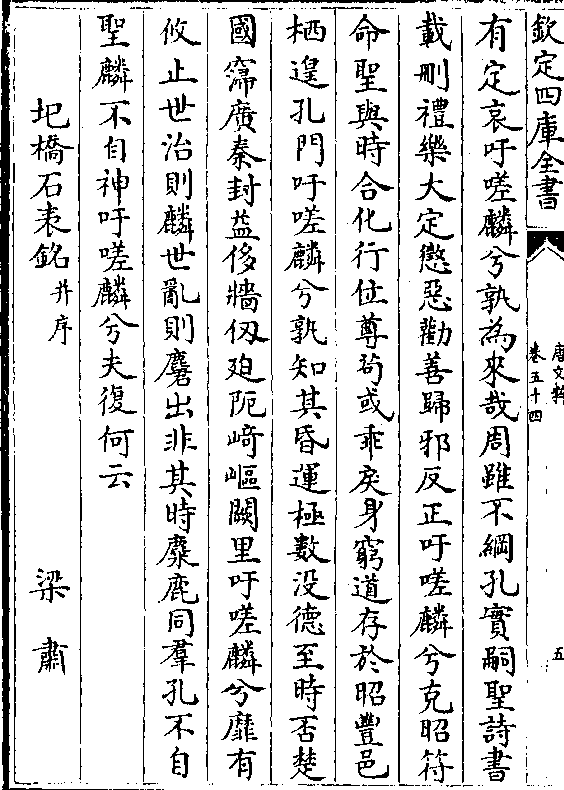 欽定四庫全書
唐文粹
卷五十四
五
有定哀吁嗟麟兮孰為來哉周雖不綱孔實嗣聖詩書
載刪禮樂大定懲惡勸善歸邪反正吁嗟麟兮克昭符
命聖與時合化行位尊茍或乖戾身窮道存於昭豐邑
栖遑孔門吁嗟麟兮孰知其昏運極數没德至時否楚
國窜廣秦封益侈牆仭廹阨﨑嶇闕里吁嗟麟兮靡有
攸止世治則麟世亂則麏出非其時麋鹿同羣孔不自
聖麟不自神吁嗟麟兮夫復何云
圯橋石表銘并序
梁肅